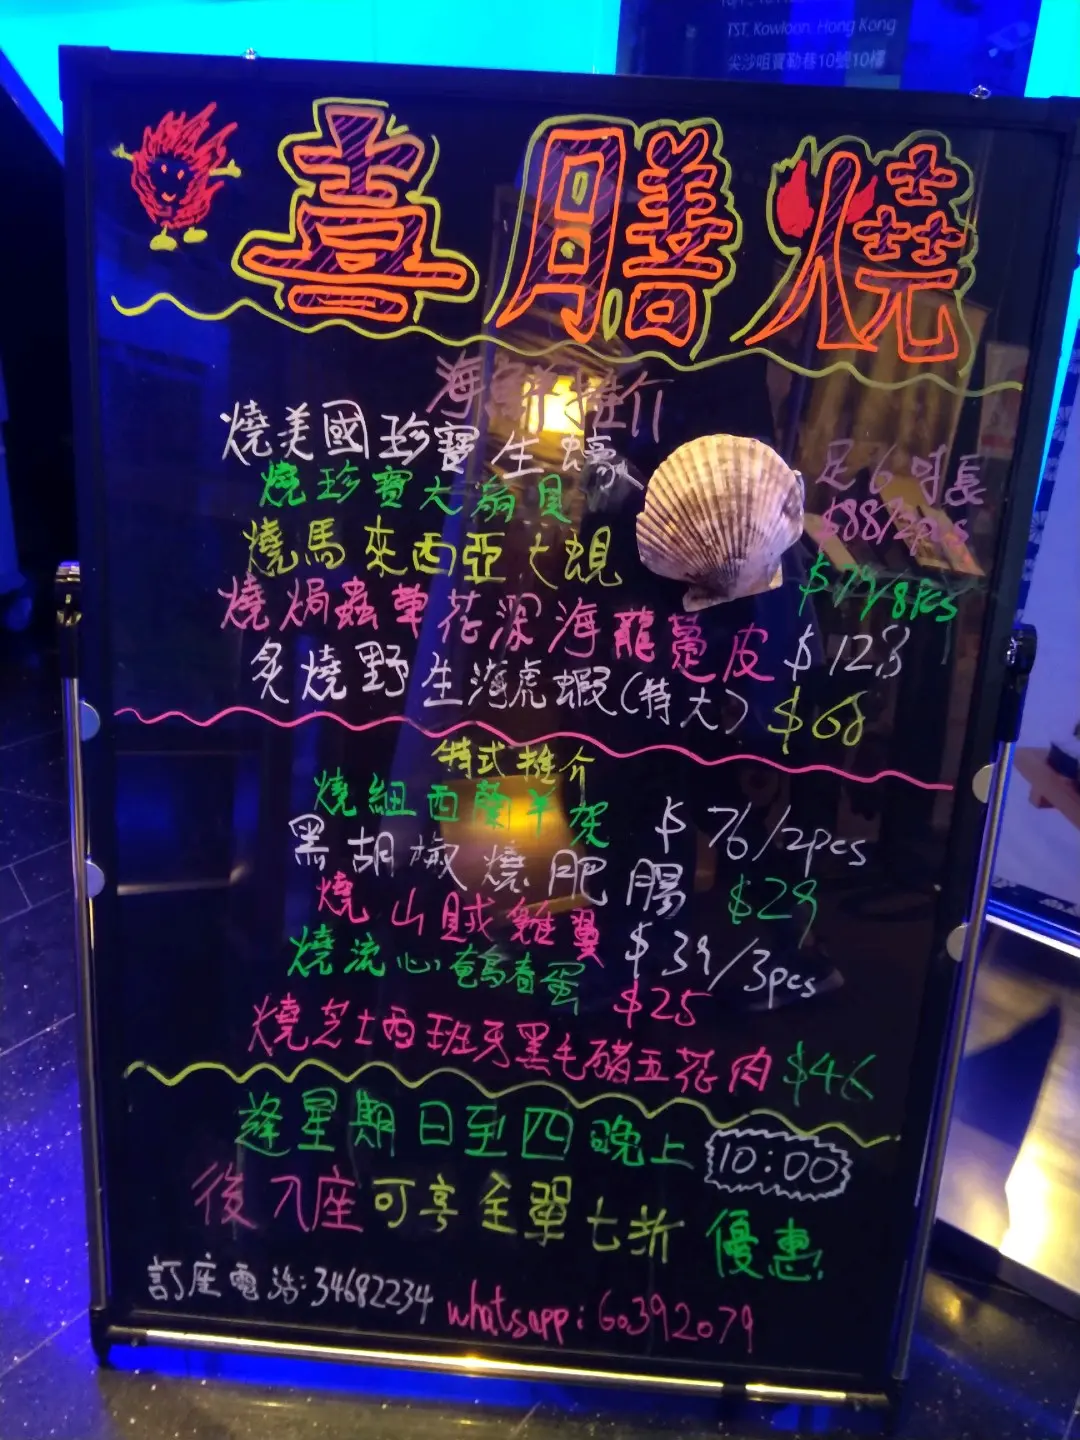 TST, Kowloon, Hong Kong
尖沙咀寶勒巷10號10樓
喜膳燒
海鮮推介
燒美國珍寶生蠔
足6吋長
$88/2pcs
燒珍寶大扇貝
燒馬來西亞大蜆
$79/8pcs
燒焗蟲草花深海龍躉皮 $128
炙燒野生海虎蝦(特大) $68
特式推介
燒紐西蘭羊架 $76/2pcs
黑胡椒燒肥腸 $29
燒山賊雞翼 $39/3pcs
燒流心鵪春蛋 $25
燒芝士西班牙黑毛豬五花肉 $46
逢星期日至四晚上 10:00
後入座可享全單七折優惠!
訂座電話:34682234 whatsapp:60392079